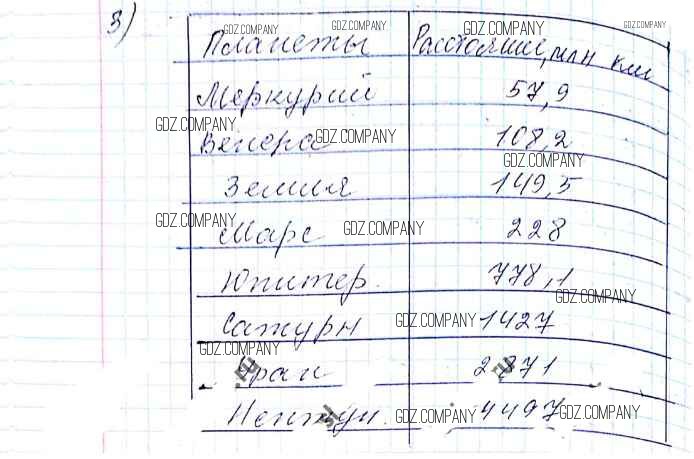 3)
Планеты Расстояние, млн км
Меркурий 57,9
Венера 108,2
Земля 149,5
Марс 228
Юпитер 778,1
Сатурн 1427
Уран 2871
Нептун. 4497
GDZ.COMPANY
GDZ.COMPANY
GDZ.COMPANY
GDZ.COMPANY
GDZ.COMPANY
GDZ.COMPANY
GDZ.COMPANY
GDZ.COMPANY
GDZ.COMPANY
GDZ.COMPANY
GDZ.COMPANY
GDZ.COMPANY
GDZ.COMPANY
GDZ.COMPANY